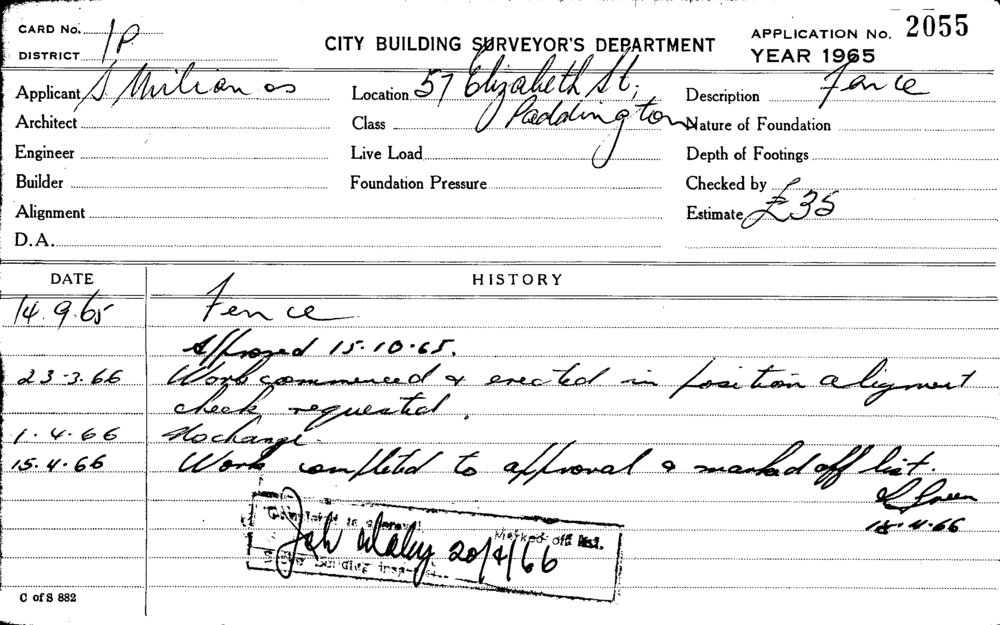 CARD No. 1P
DISTRICT
CITY BUILDING SURVEYOR'S DEPARTMENT
APPLICATION No. 2055
YEAR 1965
Applicant S Milianos
Location 57 Elizabeth St,
Paddington
Description Fence
Architect
Class
Nature of Foundation
Engineer
Live Load
Depth of Footings
Builder
Foundation Pressure
Checked by
Alignment
Estimate £35
D.A.
DATE
HISTORY
14.9.65 Fence
Approved 15.10.65.
23-3.66 Work commenced & erected in position aligment
check requested.
1.4.66 No change.
15.4.66 Work completed to approval & marked off list.
15.4.66
Completed to approval
Marked off list.
20/4/66
Building Inspector
C of S 882